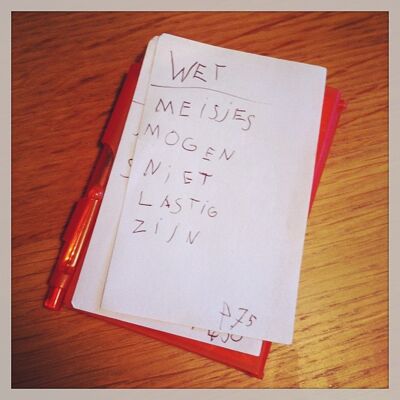 WET
MEISJES
MOGEN
NIET
LASTIG
ZIJN
P.75